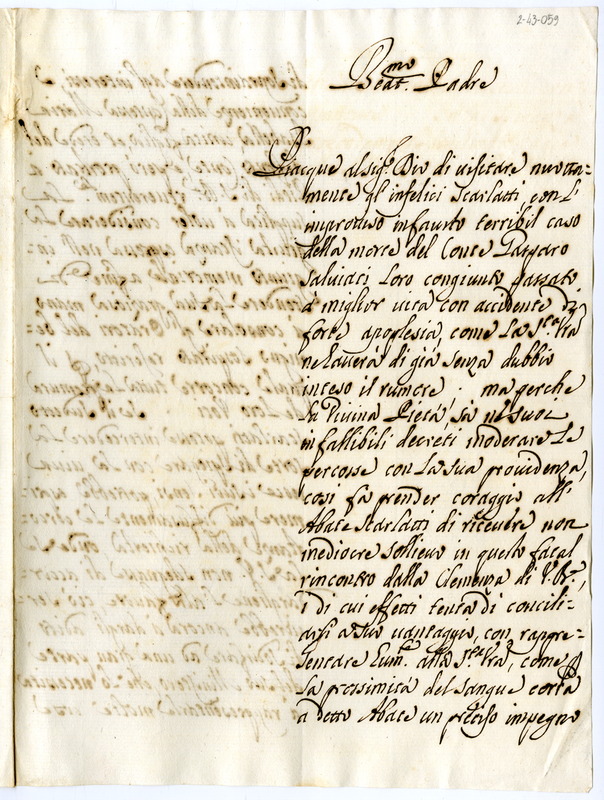 2-43-059
Beat.mo Padre
Piacque al sig.r Dio di visitare nuova-
mente gl'infelici Scarlatti con l'
improviso infausto terribil caso
della morte del Conte Gasparo
Salviati loro congiunto passato
à miglior vita con accidente di
forte apoplesia, come la S.tà V.ra
ne haverà di già senza dubbio
inteso il rumore; ma perche
la Divina Pietà, sà ne' suoi
infallibili decreti moderare le
percosse con la sua providenza,
cosi fa prender coraggio all'
Abate Scarlatti di ricevere non
mediocre sollievo in questo fatal
rincontro dalla Clemenza di V. B.ne,
i di cui effetti tenta di concili-
arsi a suo vantaggio, con rappre-
sentare Eum.te alla S.tà V.ra, come p
la prossimità del sangue corra
a detto Abate un preciso impegno